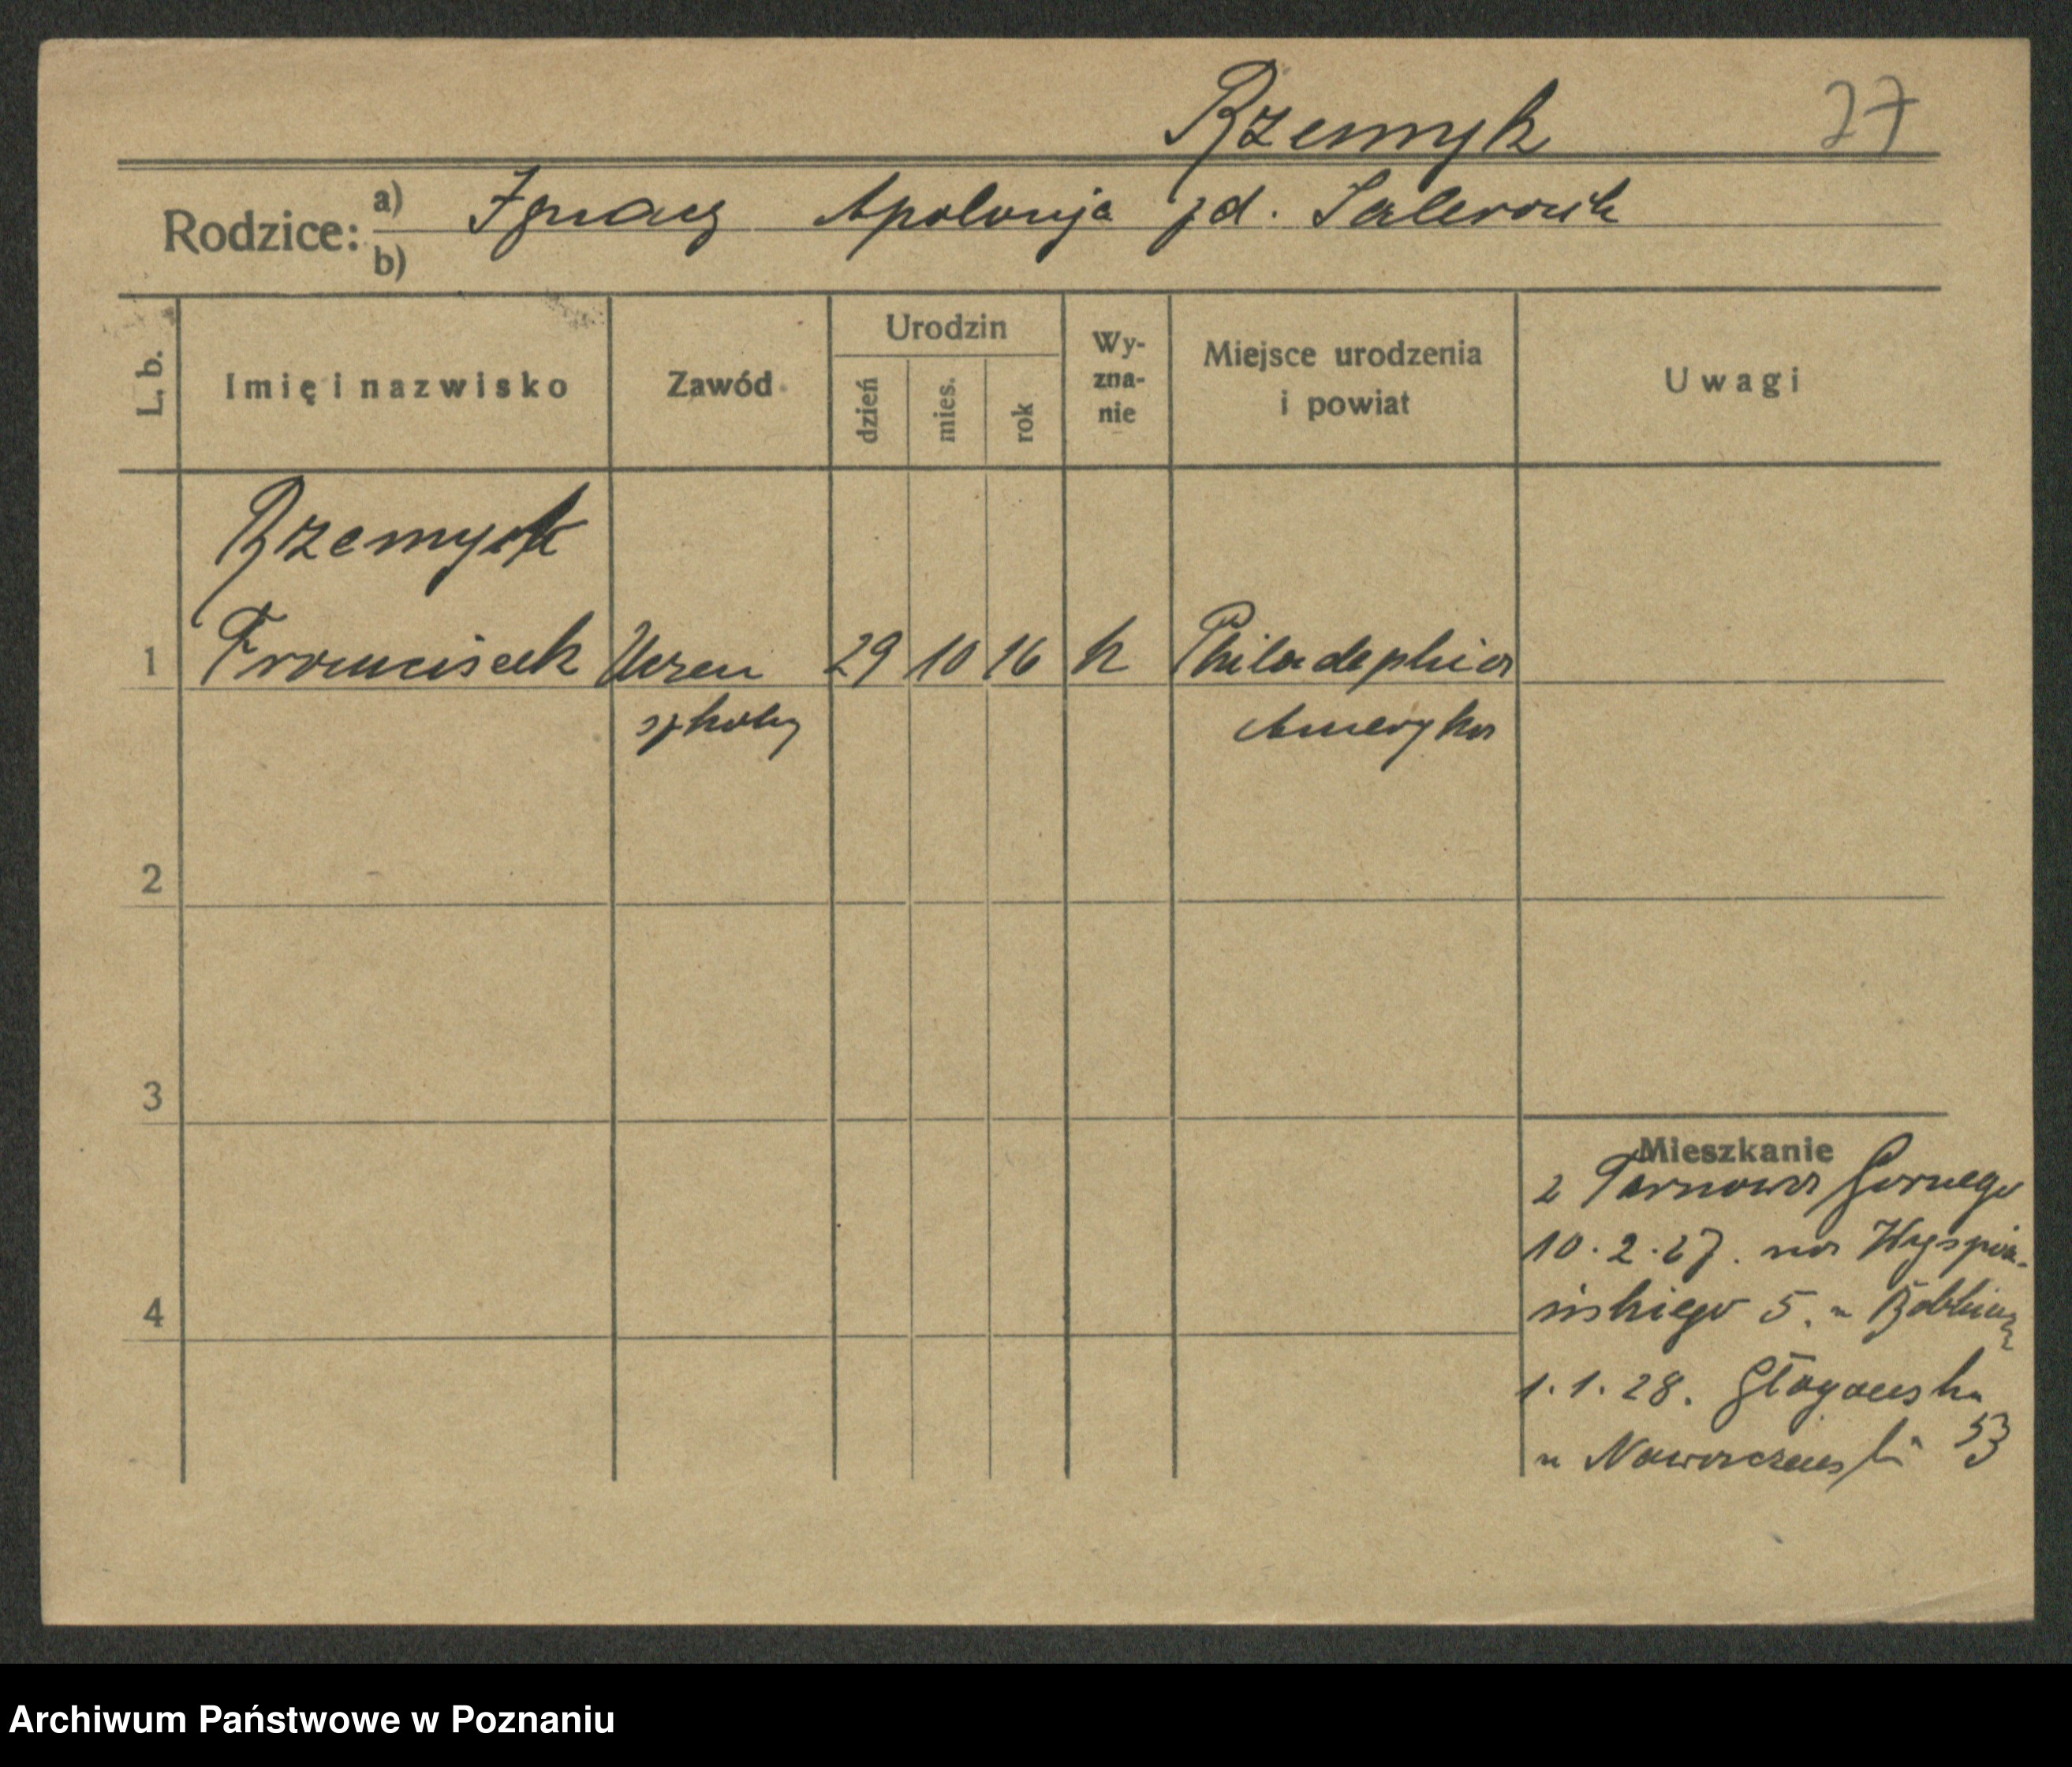 Rzemyk 27
Rodzice: a) Ignacy Apolonja zd.
b)
L. b. Imię i nazwisko Zawód Urodzin dzień mies. rok Wy-zna-nie Miejsce urodzenia i powiat Uwagi
Rzemyk
1 Franciszek Uczeń 29 10 16 k Philadephia
szkoły Ameryka
2
3
Mieszkanie
z Tarnowa Gornego
10.2.27. na Wyspiań-
ńskiego 5. u
4
1.1.28. Głogowska
53
u
Archiwum Państwowe w Poznaniu